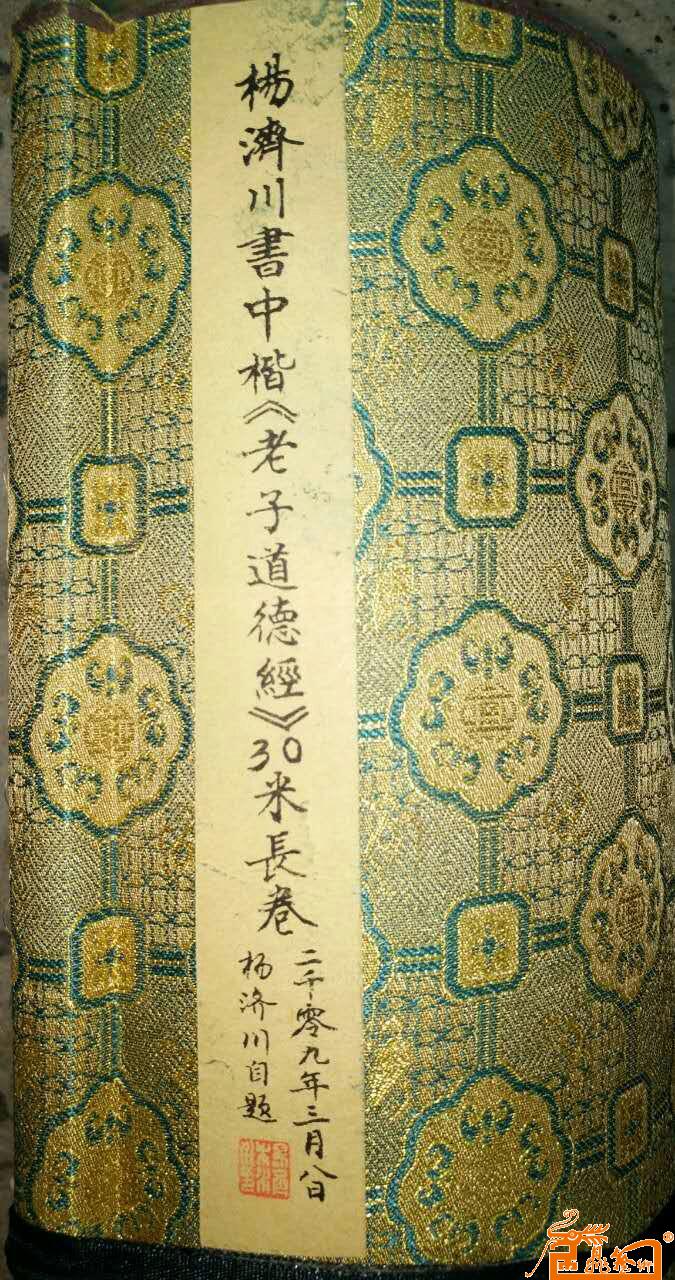 楊濟川書中楷《老子道德經》30米長卷
二千零九年三月八日
杨济川自题